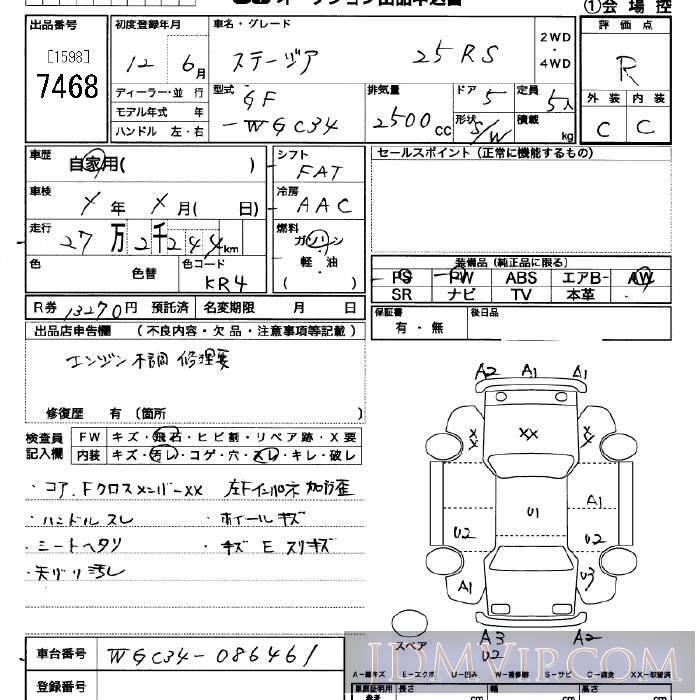 ①会場控
出品番号
[1598]
7468
初度登録年月
12 6月
車名・グレード
ステージア 25RS
2WD
・
4WD
評価点
R
外装 内装
C C
ディーラー・並行
モデル年式 年
ハンドル 左・右
型式
GF
-WGC34
排気量
2500cc
ドア 5
定員 5人
形状 S/W
積載 kg
車歴
自家用( )
車検
X年X月( 日)
走行
27万2千244km
色 色替
色コード
KR4
シフト
FAT
冷房
AAC
燃料
ガソリン
軽・油
( )
セールスポイント(正常に機能するもの)
装備品(純正品に限る)
PS PW ABS エアB- AW
SR ナビ TV 本革
R券 13270円 預託済 名変期限 月 日
保証書 有・無
後日品
出品店申告欄 (不良内容・欠品・注意事項等記載)
エンジン不調 修理要
修復歴 有 〔箇所 〕
検査員
記入欄
FW キズ・飛石・ヒビ割・リペア跡・X要
内装 キズ・汚レ・コゲ・穴・スレ・キレ・破レ
・コア.Fクロスメンバーxx 左Fインパネ加修歪
・ハンドルスレ ・ホイールキズ
・シートヘタリ ・キズ E スリキズ
・天バリ汚レ
A2 A1 A1
XX XX XX
A1
U1
U2 U2
A1 U3
スペア
A3 A2
U2
車台番号 WGC34-086461
登録番号
A-線キズ E-エクボ U-凹み W-補修跡 S-サビ C-腐食 XX-取替済
車庫証明用
参考
長さ cm 幅 cm 高さ cm
JDMVIP.COM